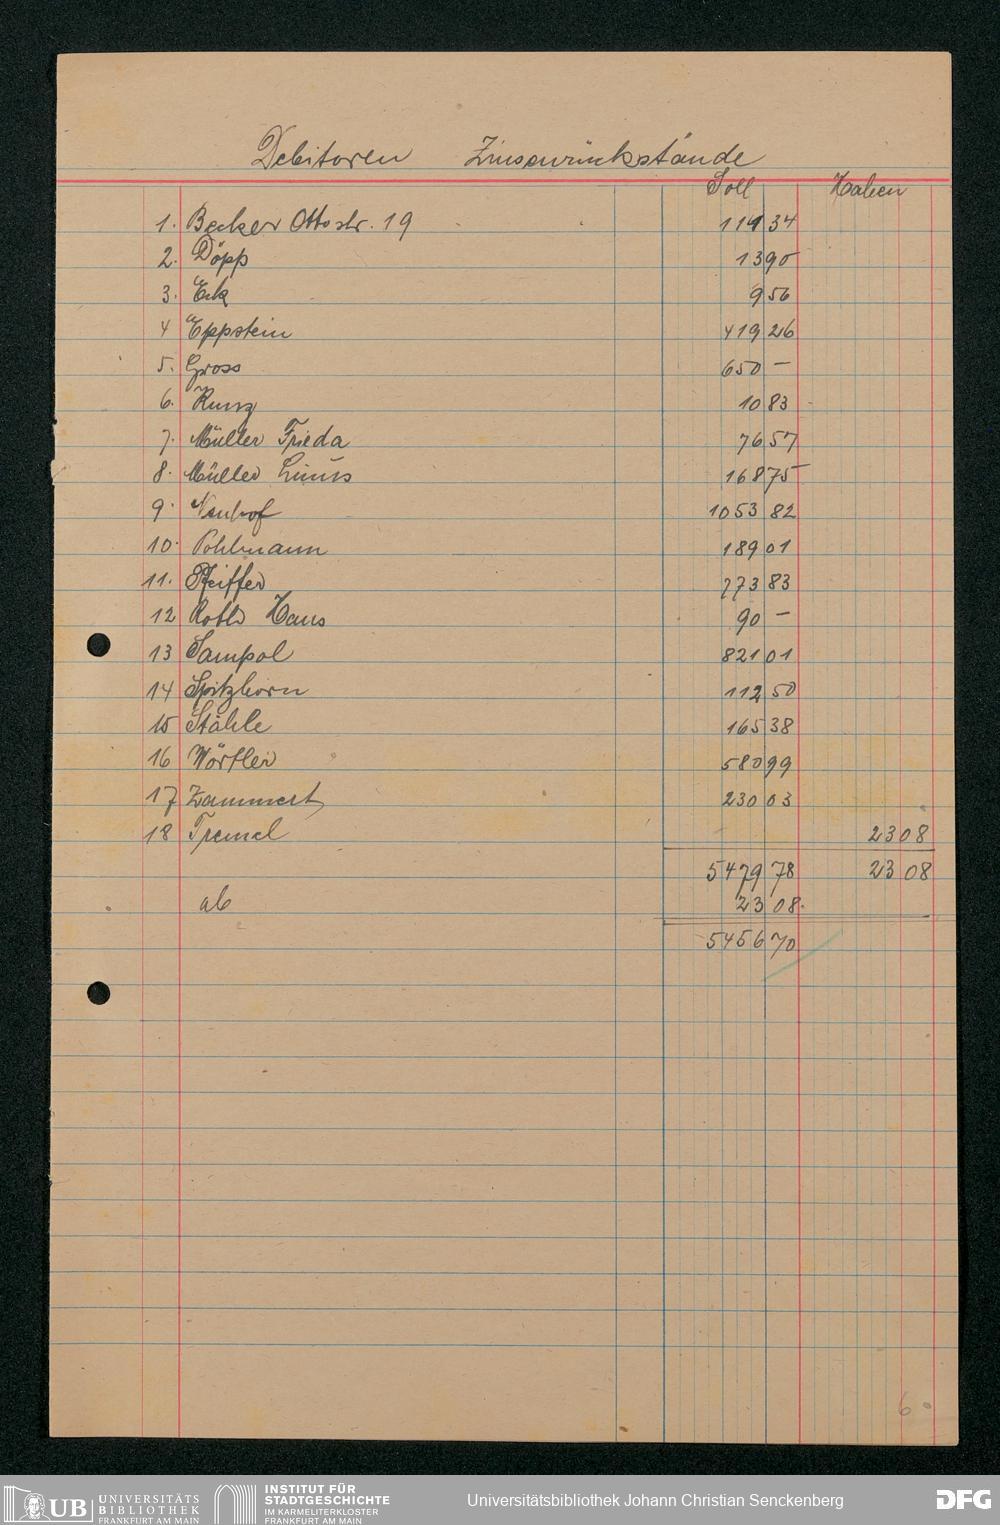 Debitoren Zinsenrückstände
Soll Haben
1. Becker Ottostr. 19 114 34
2. Döpp 13 90
3. Eck 9 56
4 Eppstein 419 26
5. Gross 650 –
6. Kunz 10 83
7. Müller Frieda 76 57
8. Müller 168 75
9. Neuhof 1053 82
10. Pohlmann 189 01
11. Pfeiffer 773 83
12 Roth Hans 90 –
13 Sampol 821 01
14 Spitzhorn 112 50
15 Stähle 165 38
16 Wörtler 580 99
17 Zammert 230 03
18 Tremel 23 08
5479 78 23 08
ab 23 08.
5456 70
6
UB UNIVERSITÄTS
BIBLIOTHEK
FRANKFURT AM MAIN
INSTITUT FÜR
STADTGESCHICHTE
IM KARMELITERKLOSTER
FRANKFURT AM MAIN
Universitätsbibliothek Johann Christian Senckenberg
DFG